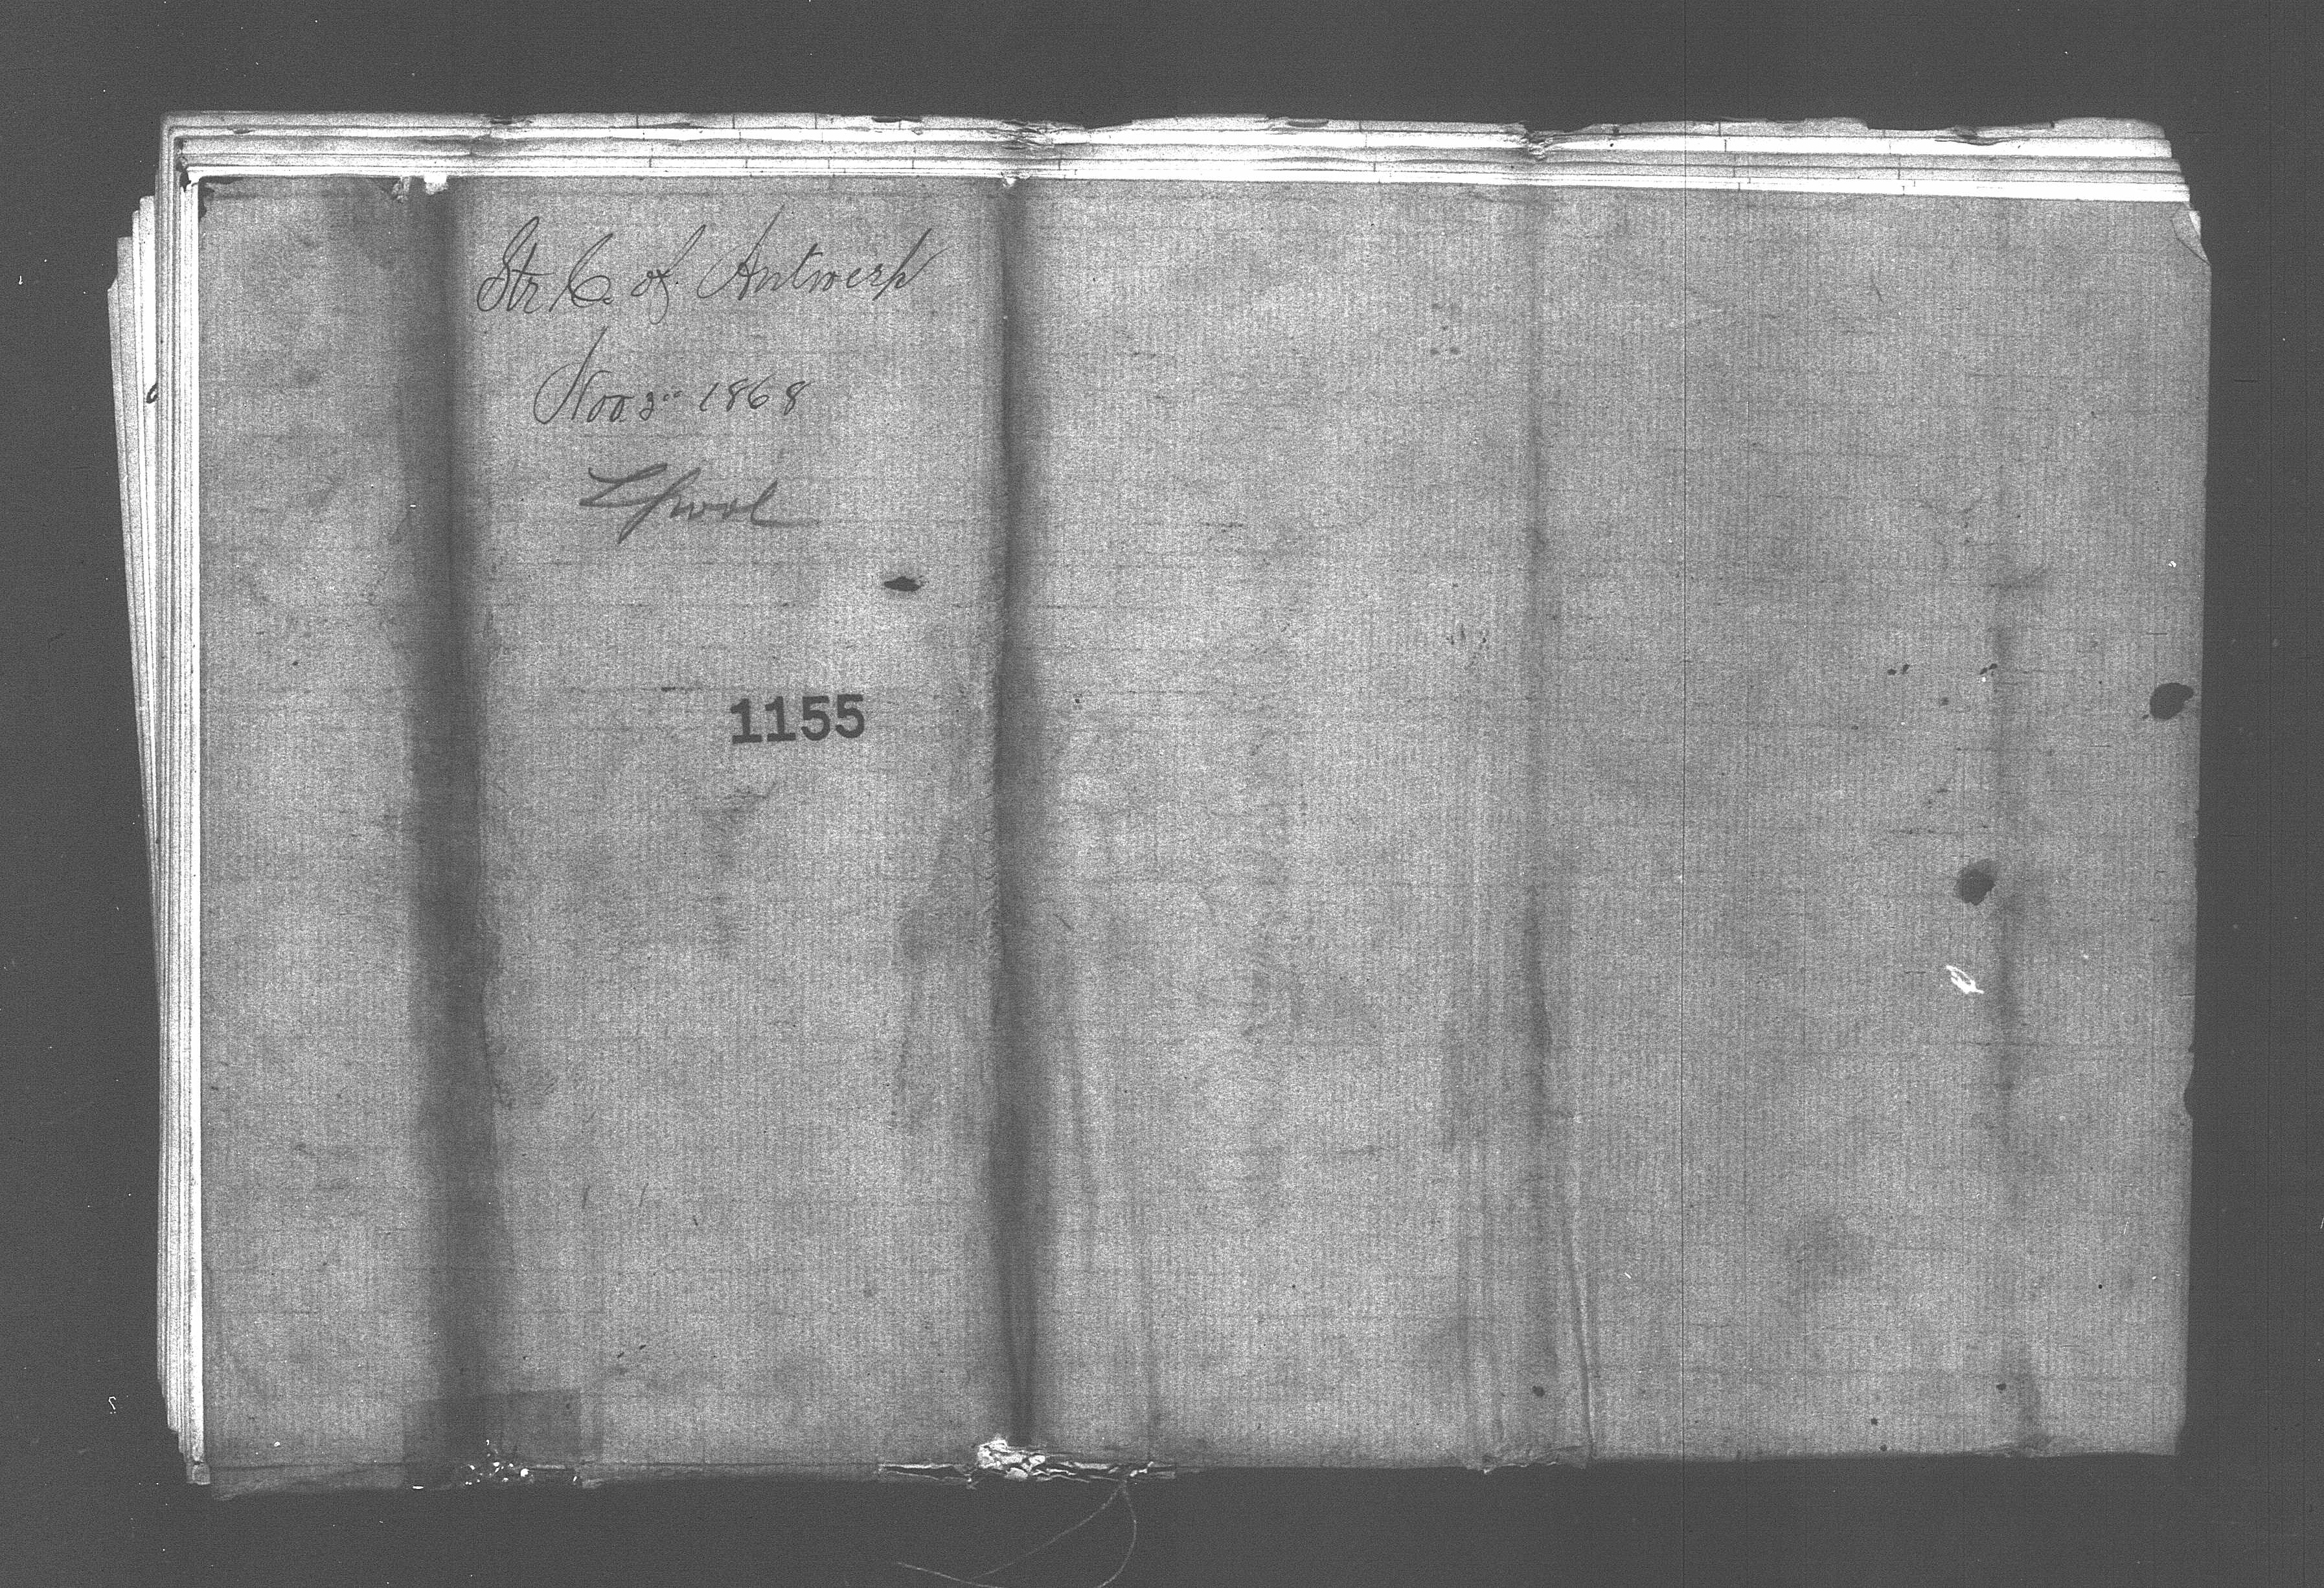 Str C. of Antwerp
Nov 3" 1868
L'pool
1155